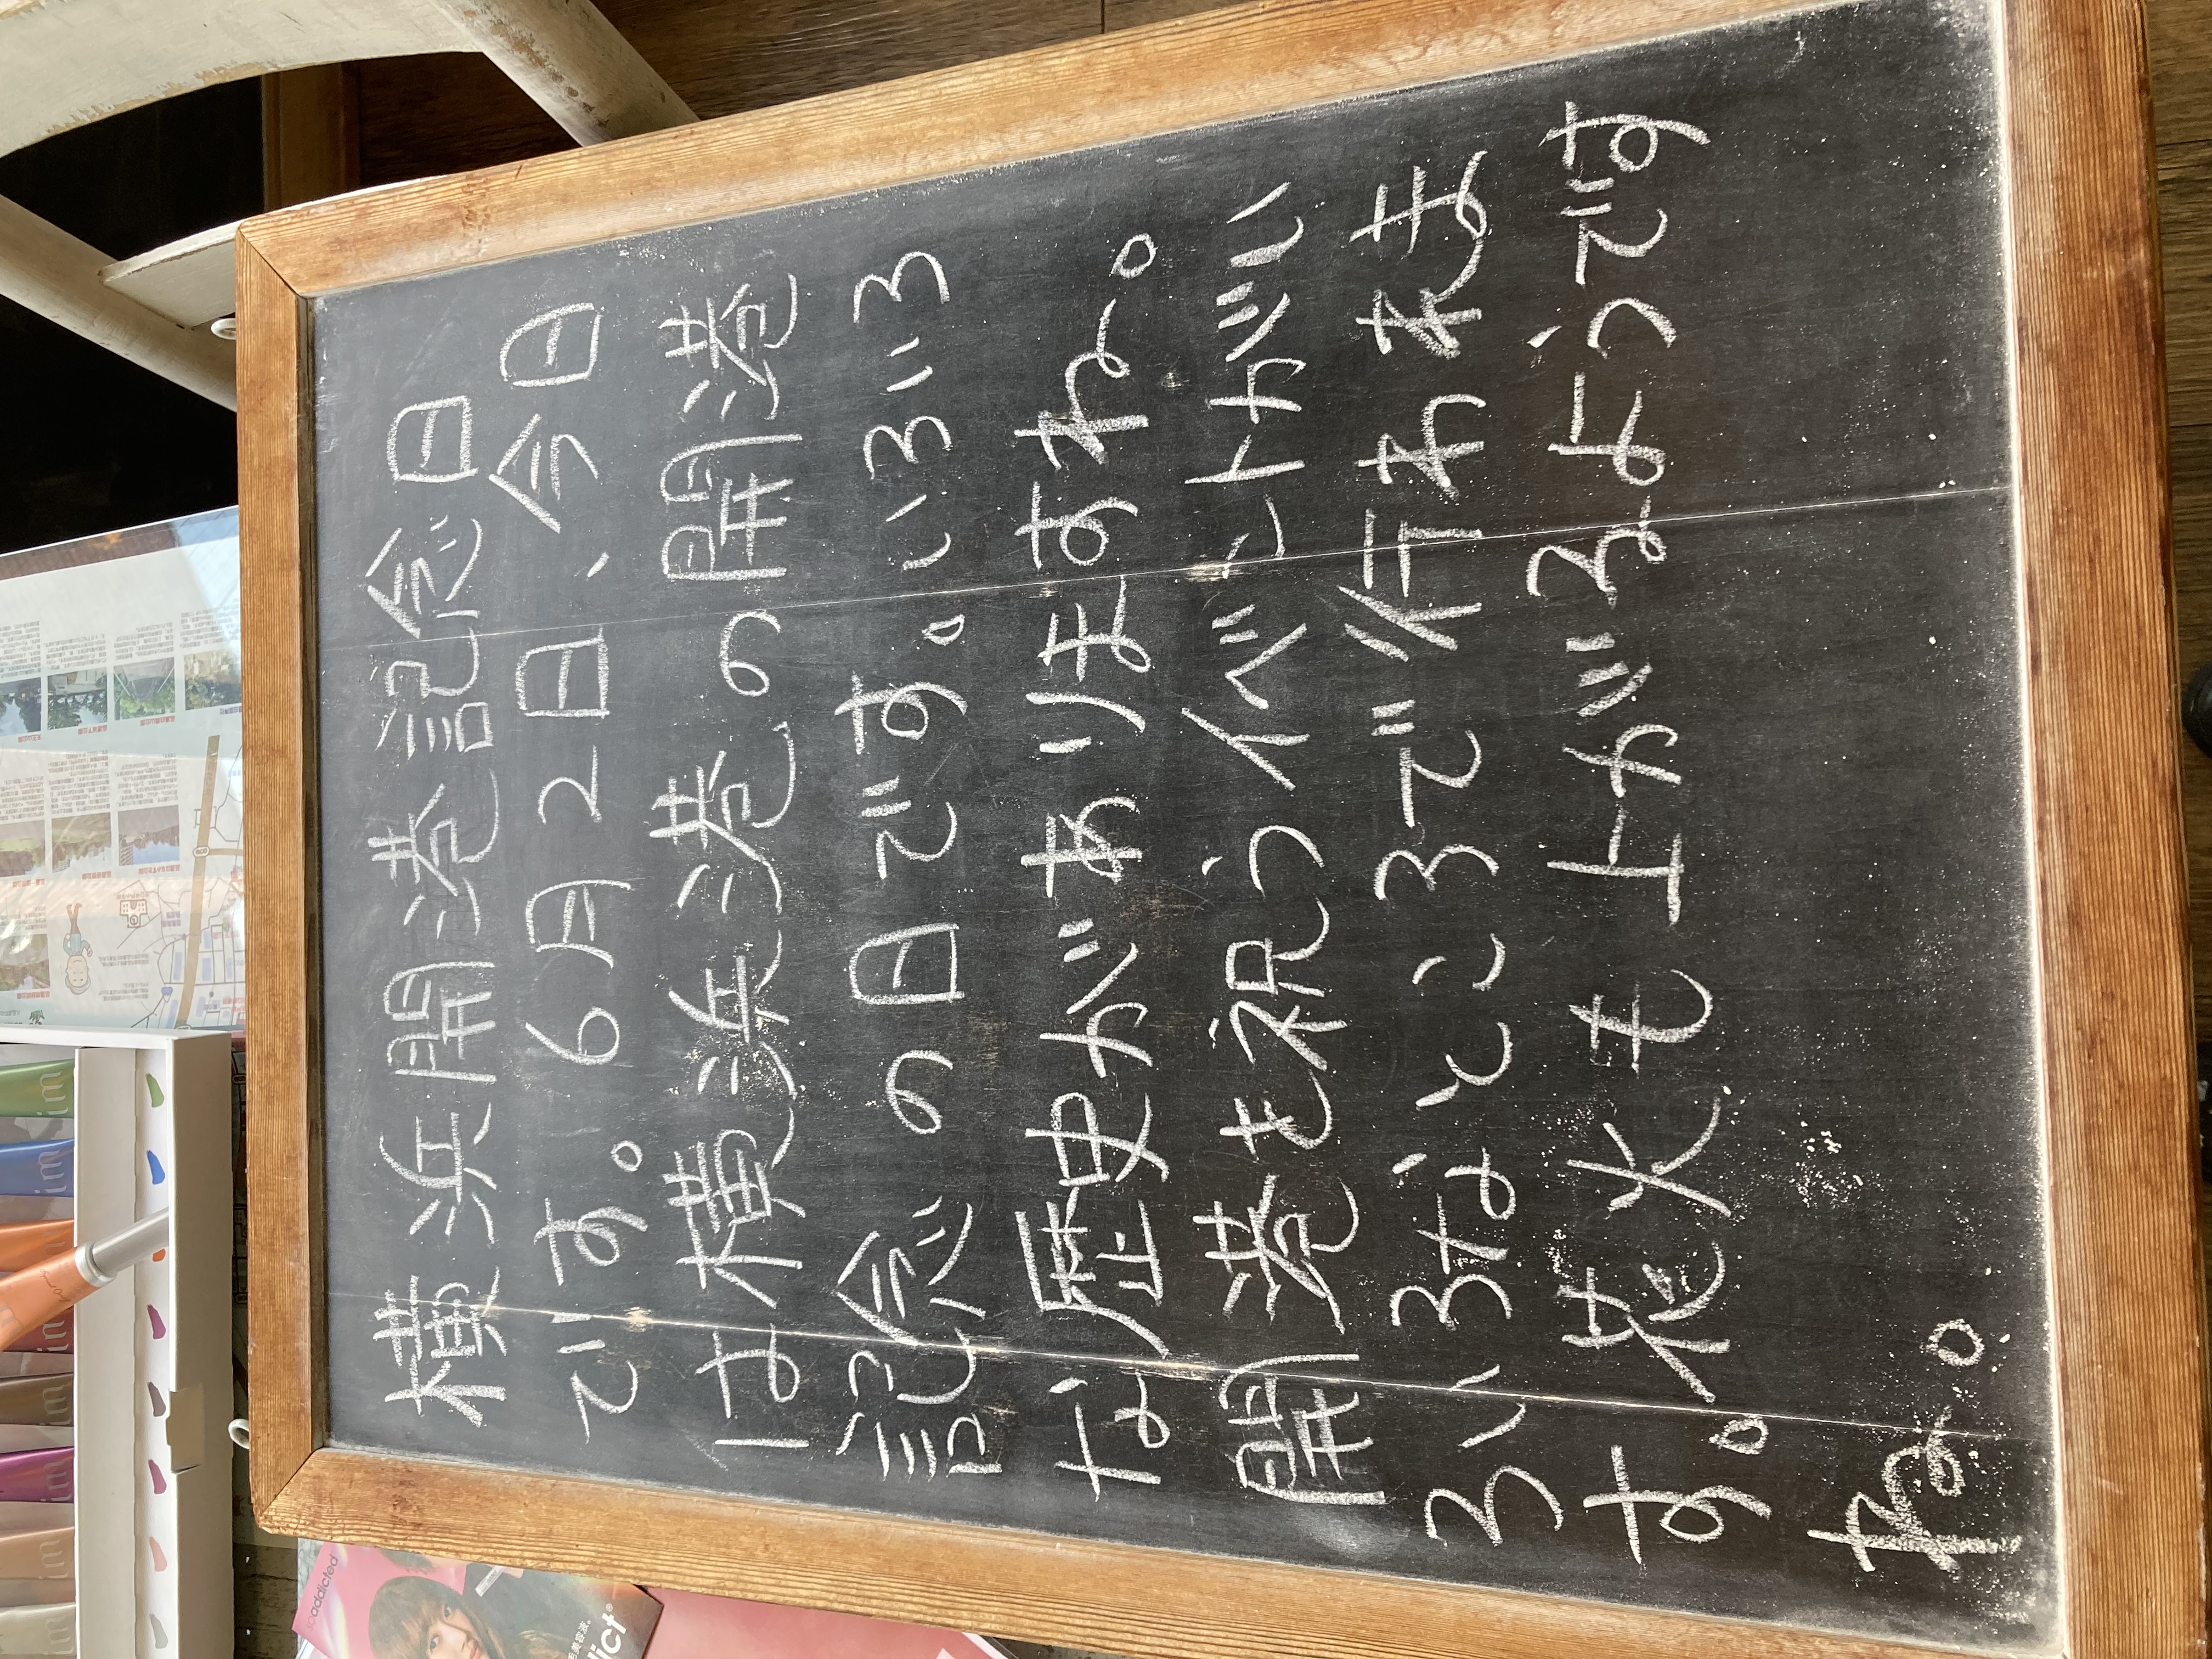 横浜開港記念日
です。6月2日、今日
は横浜港の開港
記念の日です。いろいろ
な歴史がありますね。
開港を祝うイベントがい
ろいろなところで行われま
す。花火も上がるようです
ね。
addicted
dict